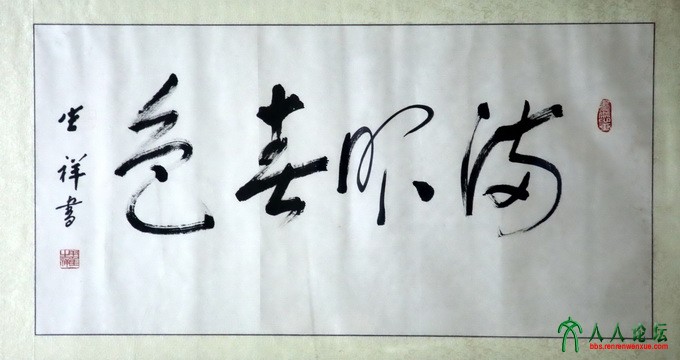 满眼春色
祥書
人人论坛
bbs.renrenwanxue.com